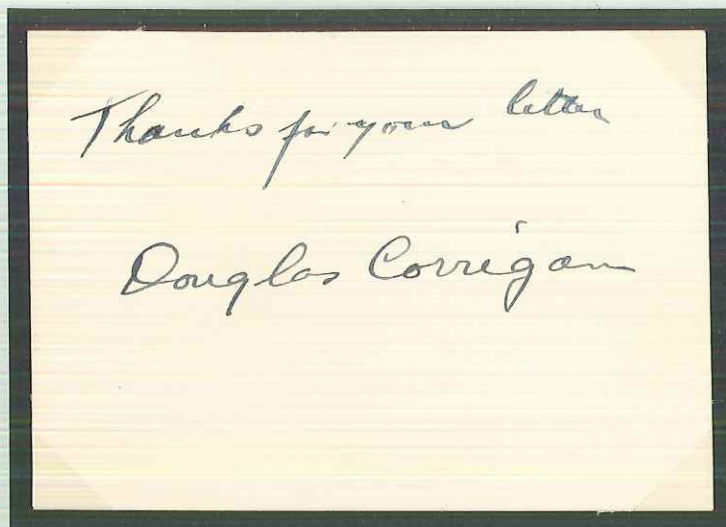 Thanks for your letter
Douglas Corrigan